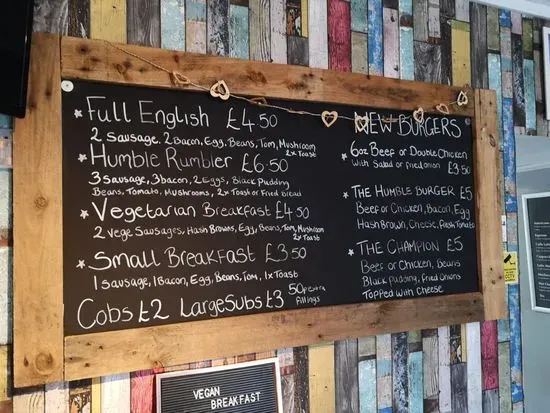 Full English £4.50
2 Sausage, 2 Bacon, Egg, Beans, Tom, Mushroom
2x Toast
Humble Rumbler £6.50
3 Sausage, 3 bacon, 2 Eggs, Black Pudding
Beans, Tomato, Mushrooms, 2x Toast or Fried Bread
Vegetarian Breakfast £4.50
2 Vege Sausages, Hash Browns, Egg, Beans, Tom, Mushroom
2x Toast
Small Breakfast £3.50
1 Sausage, 1 Bacon, Egg, Beans, Tom, 1x Toast
Cobs £2 Large Subs £3 50p extra
fillings
NEW BURGERS
6oz Beef or Double Chicken
With Salad or fried onion £3.50
THE HUMBLE BURGER £5
Beef or Chicken, Bacon, Egg
Hash Brown, Cheese, Fresh Tomato
THE CHAMPION £5
Beef or Chicken, Beans
Black Pudding, Fried Onions
Topped With Cheese
VEGAN
BREAKFAST
CCTV